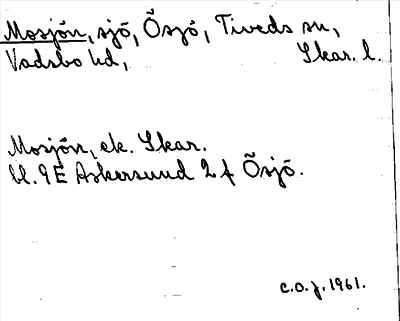 Mosjön, sjö, Ösjö, Tiveds sn,
Vadsbo hd, Skar. l.
Mosjön, ek. Skar.
bl. 9E Askersund 2 f Ösjö.
C.O.J. 1961.